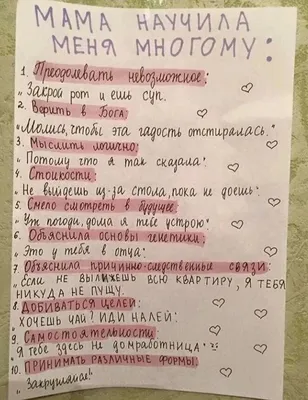 МАМА НАУЧИЛА
МЕНЯ МНОГОМУ:
1. Преодолевать невозможное:
„Закрой рот и ешь суп.
2. Верить в Бога
„Молись, чтобы эта гадость отстиралась."
3. Мыслить логично:
„Потому что я так сказала"
4. Стойкости:
„Не выйдешь из-за стола, пока не доешь"
5. Смело смотреть в будущее
„Уж погоди, дома я тебе устрою"
6. Объяснила основы генетики:
„Это у тебя в отца"
7. Объяснила причинно-следственные связи
„Если не вылижешь всю квартиру, я тебя
никуда не пущу.
8. Добиваться целей:
Хочешь чай? Иди налей:
9. Самостоятельности:
Я тебе здесь не домработница"
10. Принимать различные формы
„Закрушатое!"